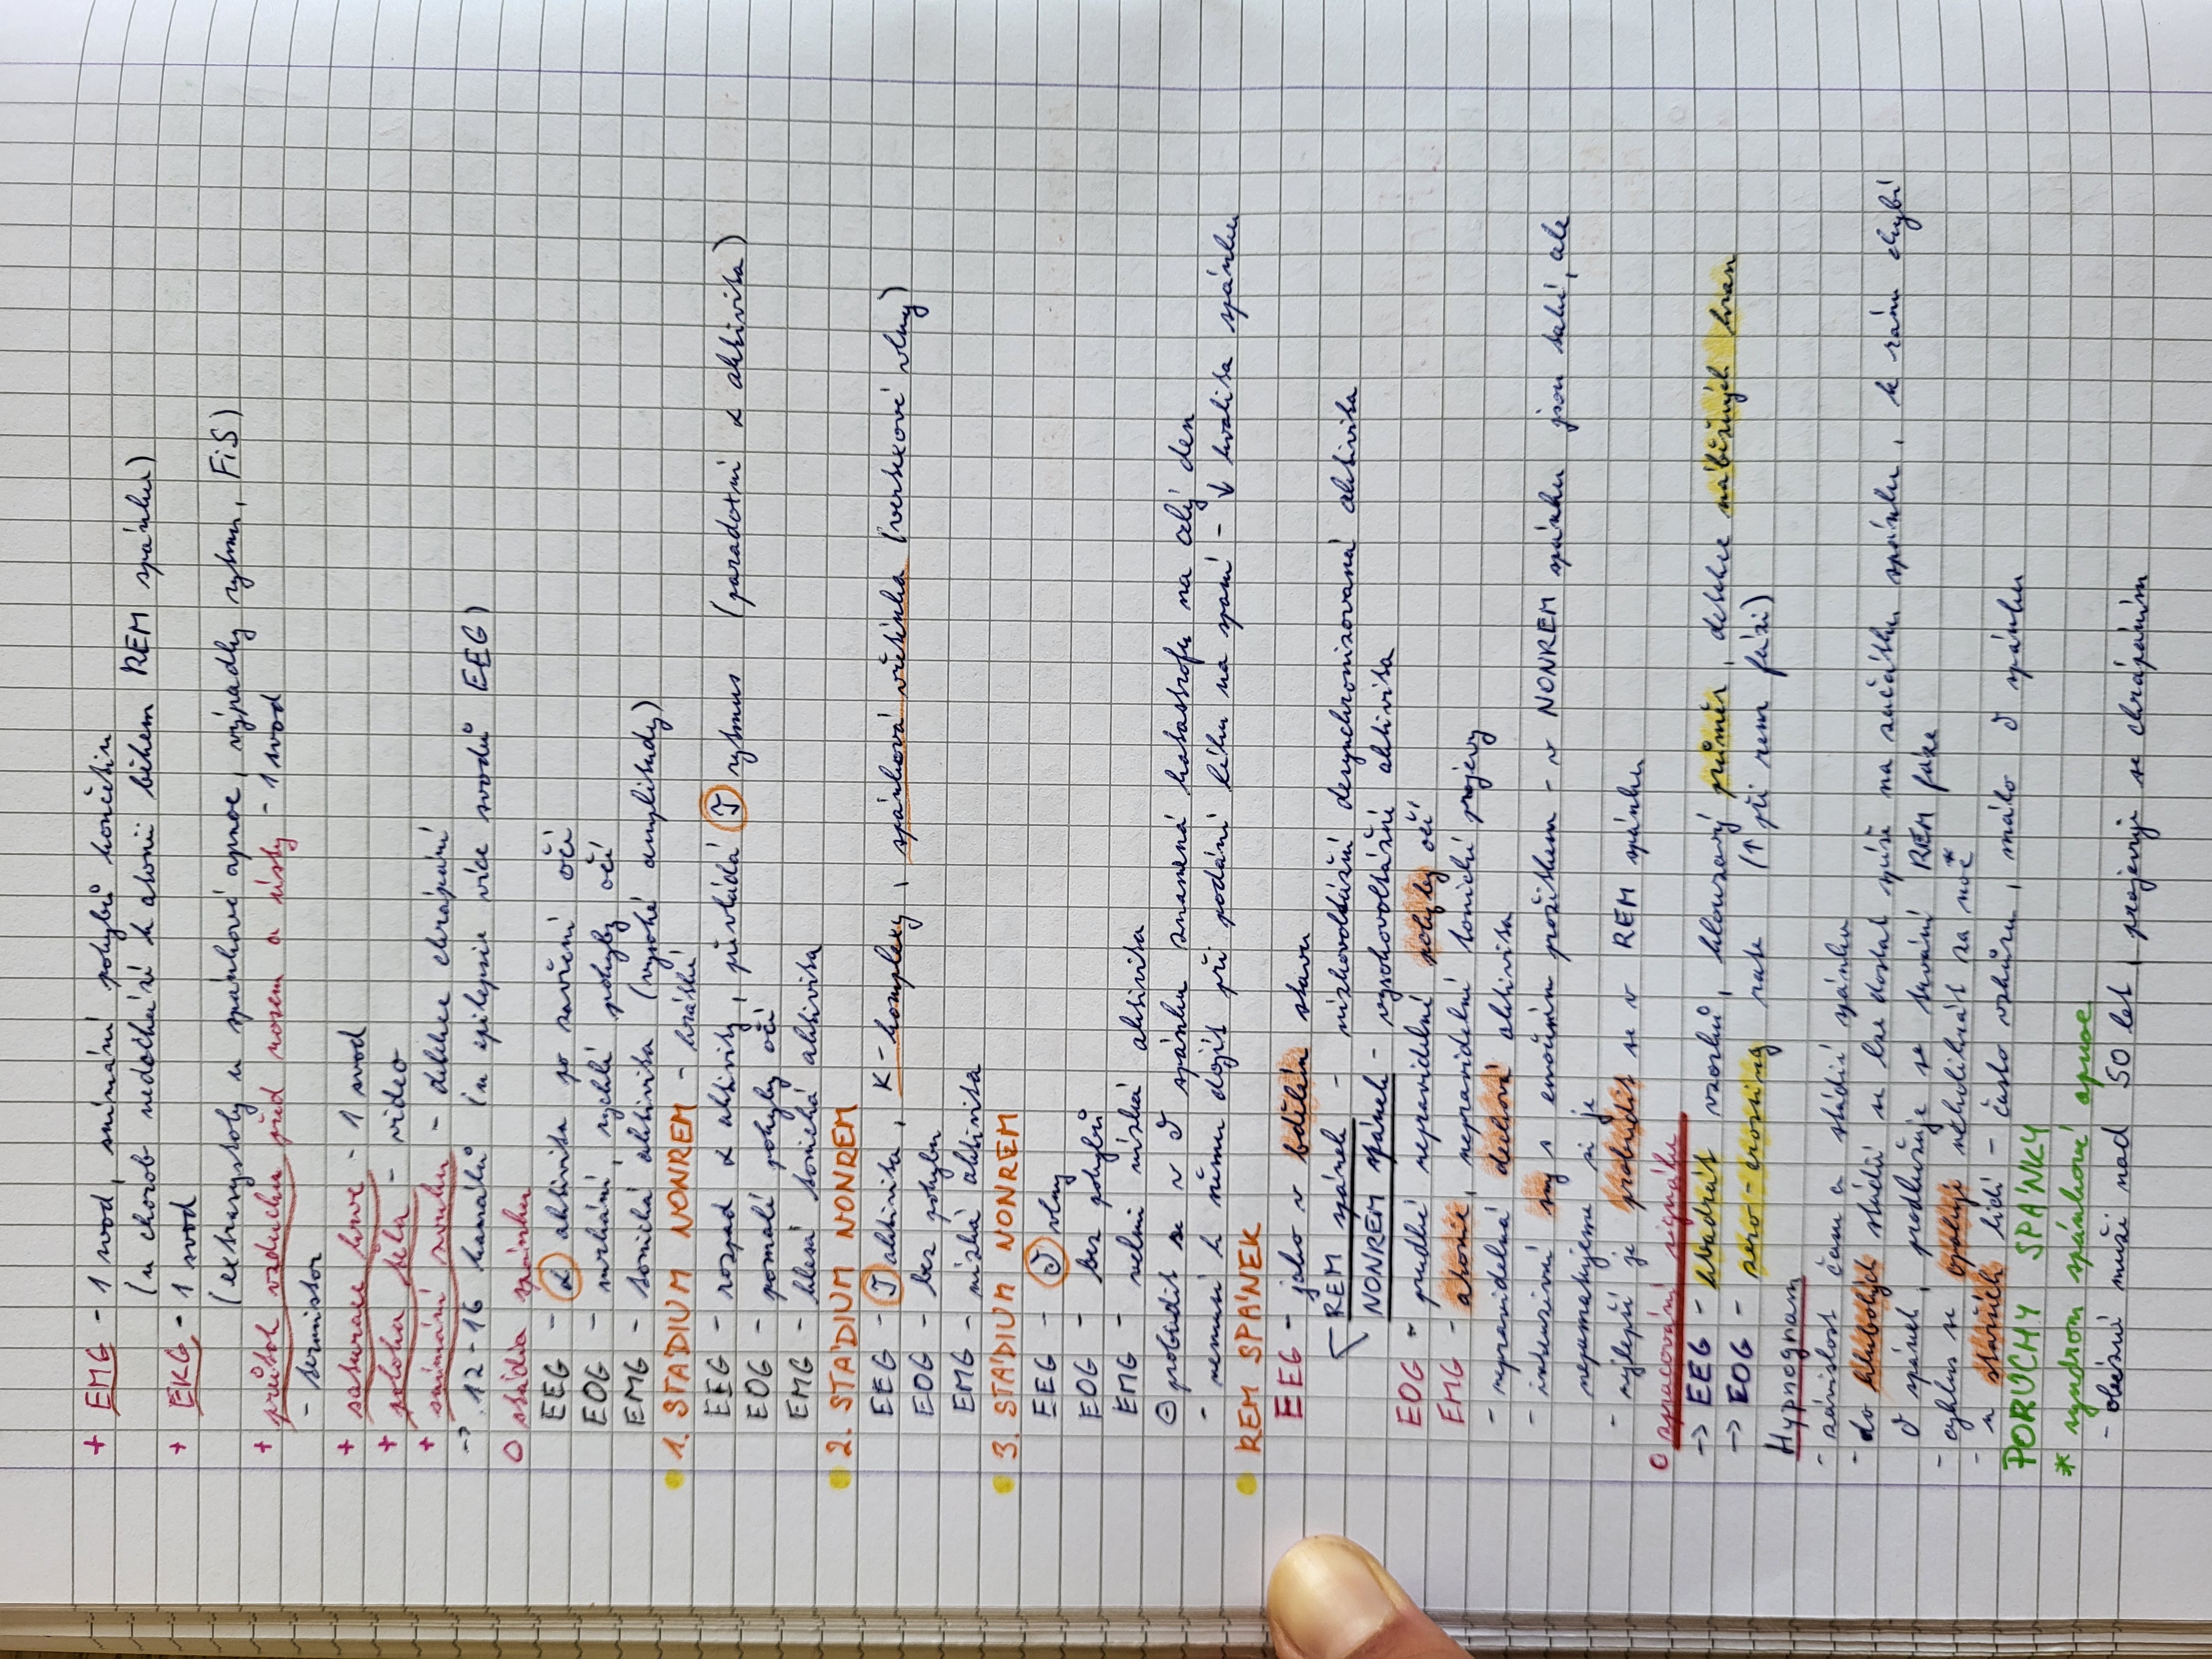 + EMG - 1 svod, snímání pohybů končetin
(u chorob nedochází k atonii během REM spánku)
+ EKG - 1 svod
(extrasystoly u spánkové apnoe, výpadky rytmu, FiS)
+ průtok vzduchu před nosem a ústy - 1 svod
- termistor
+ saturace krve - 1 svod
+ poloha těla - video
+ snímání zvuku - detekce chrápání
→ 12-16 kanálů (u epilepsie více svodů EEG)
○ stádia spánku
EEG - α aktivita po zavření očí
EOG - mrkání, rychlé pohyby očí
EMG - tonická aktivita (vysoké amplitudy)
1. STÁDIUM NONREM - krátké
EEG - rozpad α aktivity, převládá ϑ rytmus (paradoxní α aktivita)
EOG - pomalé pohyby očí
EMG - klesá tonická aktivita
2. STÁDIUM NONREM
EEG - ϑ aktivita, K-komplexy, spánková vřeténka (vertexové vlny)
EOG - bez pohybu
EMG - nízká aktivita
3. STÁDIUM NONREM
EEG - δ vlny
EOG - bez pohybů
EMG - velmi nízká aktivita
⊖ probudit se v δ spánku znamená katastrofu na celý den
- nemusí k němu dojít při podání léku na spaní - ↓ kvalita spánku
REM SPÁNEK
EEG - jako v bdělém stavu
REM spánek - nízkovoltážní desynchronizovaná aktivita
NONREM spánek - vysokovoltážní aktivita
EOG - prudké nepravidelné pohyby očí
EMG - atonie, nepravidelné tonické projevy
- nepravidelná dechová aktivita
- intenzivní sny s emočním prožitkem - v NONREM spánku jsou také, ale
nepamatujeme si je
- nejlepší je probudit se v REM spánku
○ zpracování signálu
→ EEG - kvadrát vzorků, klouzavý průměr, detekce náběžných hran
→ EOG - zero-crossing rate (↑ při rem fázi)
Hypnogram
- závislost času a stádií spánku
- do hlubokých stádií se lze dostat spíše na začátku spánku, k ránu chybí
δ spánek, prodlužuje se trvání REM fáze
- cyklus se opakuje několikrát za noc
- u starších lidí - často vzhůru, málo δ spánku
PORUCHY SPÁNKY
* syndrom spánkové apnoe
- obézní muži nad 50 let, projevuje se chrápáním